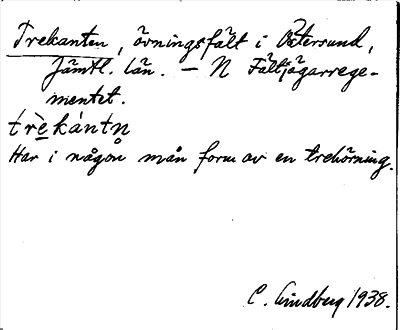 Trekanten, övningsfält i Östersund,
Jämtl. län. — N Fältjägarrege-
mentet.
trèkántn
Har i någon mån form av en trehörning.
C. Lindberg 1938.